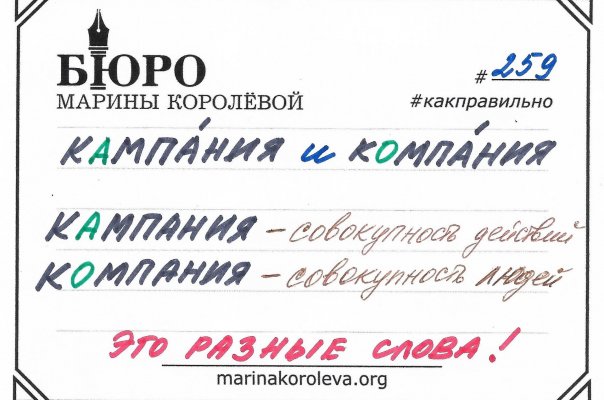 БЮРО
МАРИНЫ КОРОЛЁВОЙ
# 259
#какправильно
КАМПА́НИЯ и КОМПА́НИЯ
КАМПАНИЯ – совокупность действий
КОМПАНИЯ – совокупность людей
ЭТО РАЗНЫЕ СЛОВА!
marinakoroleva.org